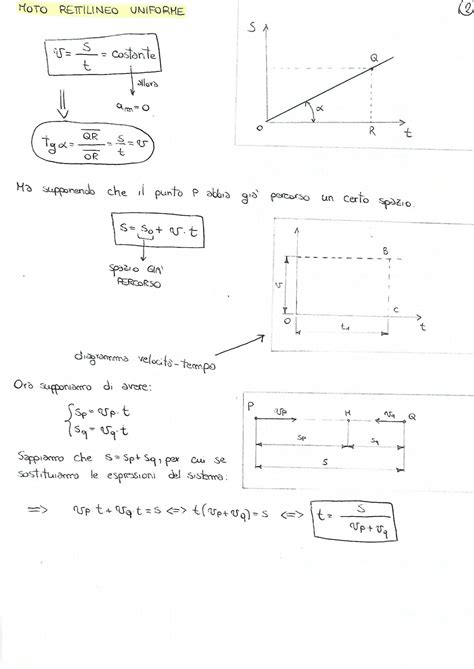 MOTO RETTILINEO UNIFORME
(2)
v = S/t = costante
allora
am = 0
tgα = QR/OR = s/t = v
S
Q
α
O
R
t
Ma supponendo che il punto P abbia già percorso un certo spazio.
s = s0 + v · t
SPAZIO GIA'
PERCORSO
B
v
O
C
t1
t
diagramma velocità-tempo
Ora supponiamo di avere:
{ Sp = vp · t
Sq = vq · t
P
vp
H
vq
Q
Sp
Sq
S
Sappiamo che s = sp + sq, per cui se
sostituiamo le espressioni del sistema:
=> vp t + vq t = s <=> t(vp+vq) = s <=> t = s/(vp+vq)